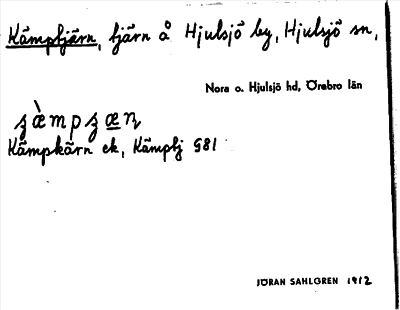 Kämptjärn, tjärn å Hjulsjö by, Hjulsjö sn,
Nora o. Hjulsjö hd, Örebro län
Kämpkärn ek, Kämptj G81
JÖRAN SAHLGREN 1912